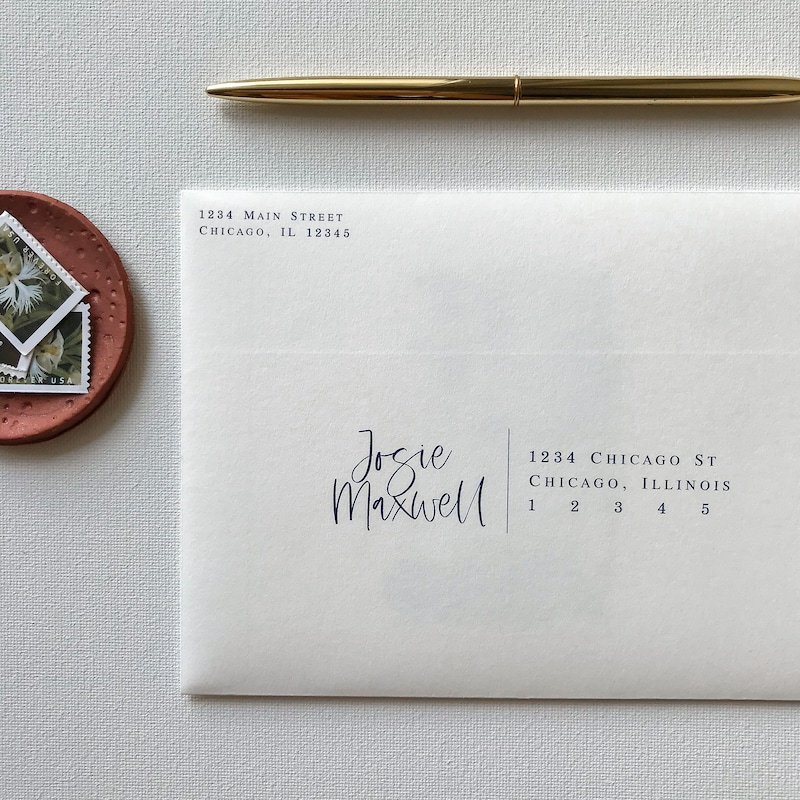 1234 Main Street
Chicago, IL 12345
FOREVER USA
FOREVER USA
Josie
Maxwell
1234 Chicago St
Chicago, Illinois
1 2 3 4 5